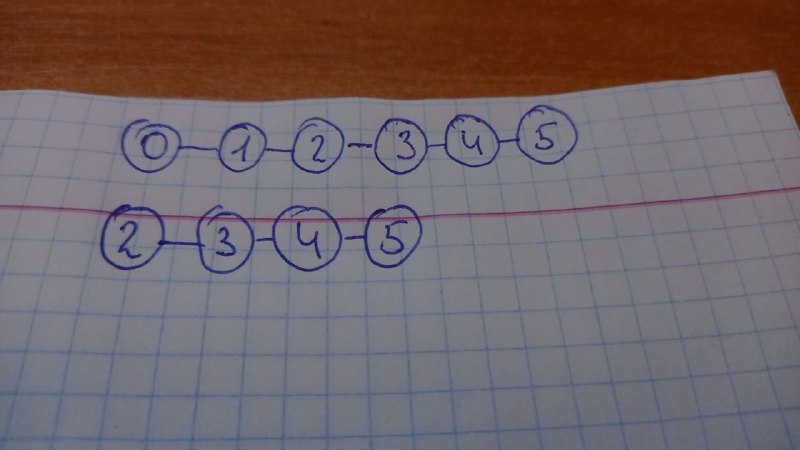 0 1 2 3 4 5
2 3 4 5